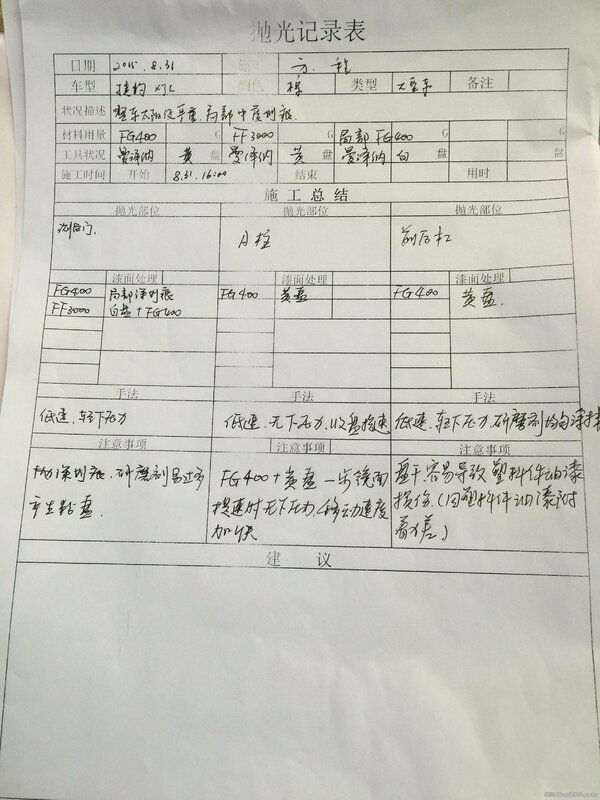 抛光记录表
日期 2015.8.31 施工 方 程
车型 捷豹XJL 颜色 棕 类型 大型车 备注
状况描述 整车太阳纹严重,局部中度划痕.
材料用量 FG400 G FF3000 G 局部 FG400 G
工具状况 曼泽纳 黄 盘 曼泽纳 黄 盘 曼泽纳 白 盘
施工时间 开始 8.31.16:00 结束 用时
施工总结
抛光部位 抛光部位 抛光部位
测后门. A柱 前后杠
漆面处理 漆面处理 漆面处理
FG400 局部深划痕 FG400 黄盘 FG400 黄盘.
FF3000 白盘+FG400
手法 手法 手法
低速.轻下压力 低速.无下压力.收盘提速 低速.轻下压力.研磨剂均匀
注意事项 注意事项 注意事项
深划痕.研磨剂易过多 FG400+黄盘一步镜面 盘干容易导致塑料件油漆
产生粘盘. 提速时无下压力.移动速度 损伤.(因塑料件油漆附
加快 着力差)
建 议